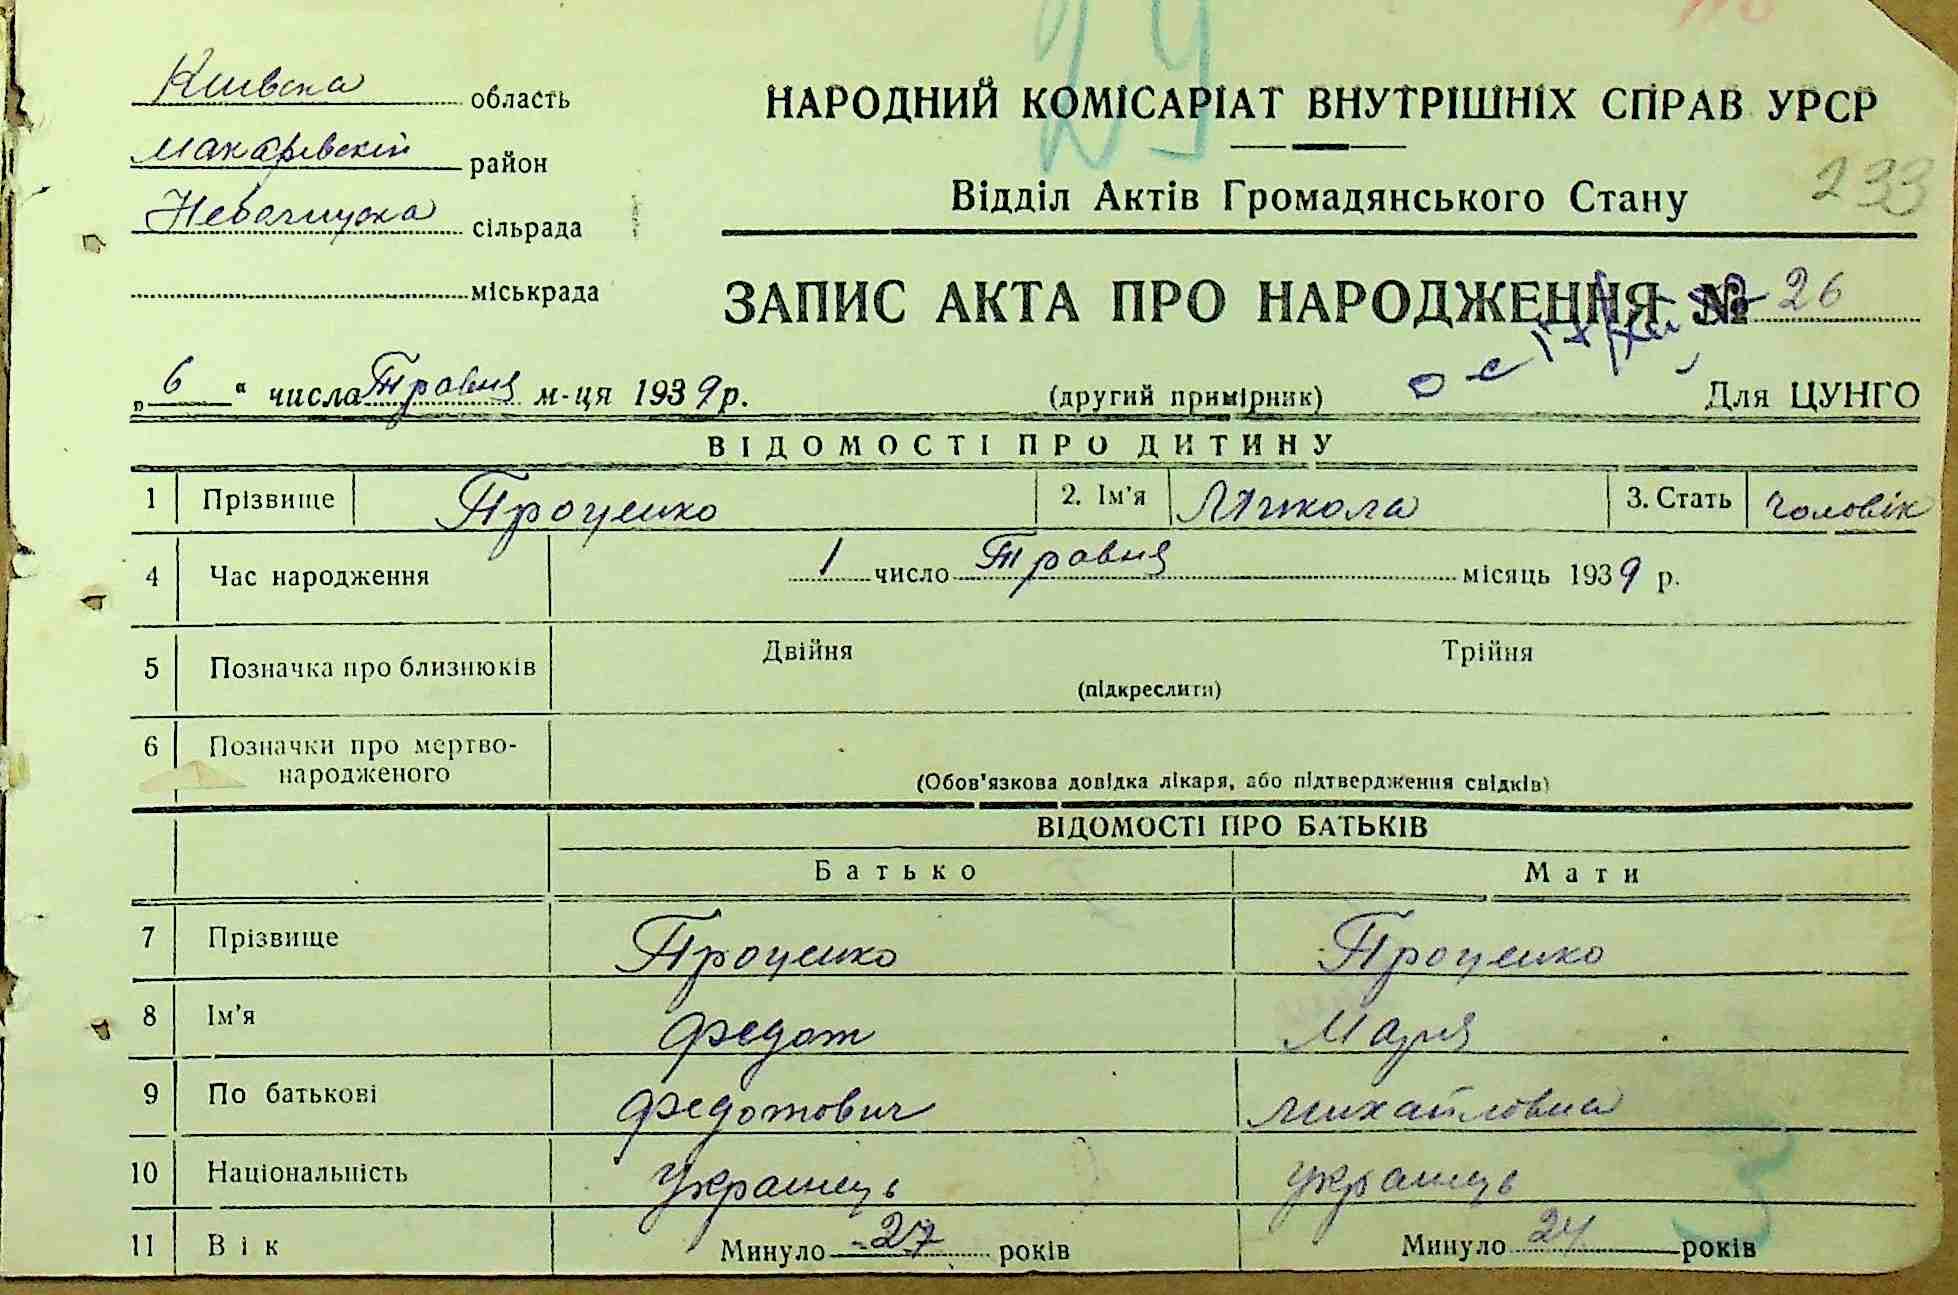 29
Київска область
Макарівский район
сільрада
міськрада
НАРОДНИЙ КОМІСАРІАТ ВНУТРІШНІХ СПРАВ УРСР
Відділ Актів Громадянського Стану
233
ЗАПИС АКТА ПРО НАРОДЖЕННЯ № 26
„6“ числа Травня м-ця 1939 р. (другий примірник) Для ЦУНГО
ВІДОМОСТІ ПРО ДИТИНУ
1 Прізвище Проценко 2. Ім'я Микола 3. Стать чоловік
4 Час народження 1 число Травня місяць 1939 р.
5 Позначка про близнюків Двійня Трійня
(підкреслити)
6 Позначки про мертво-
народженого
(Обов'язкова довідка лікаря, або підтвердження свідків)
ВІДОМОСТІ ПРО БАТЬКІВ
Батько Мати
7 Прізвище Проценко Проценко
8 Ім'я Федот Марія
9 По батькові Федотович Михайловна
10 Національність Українець Українець
11 Вік Минуло 27 років Минуло 24 років